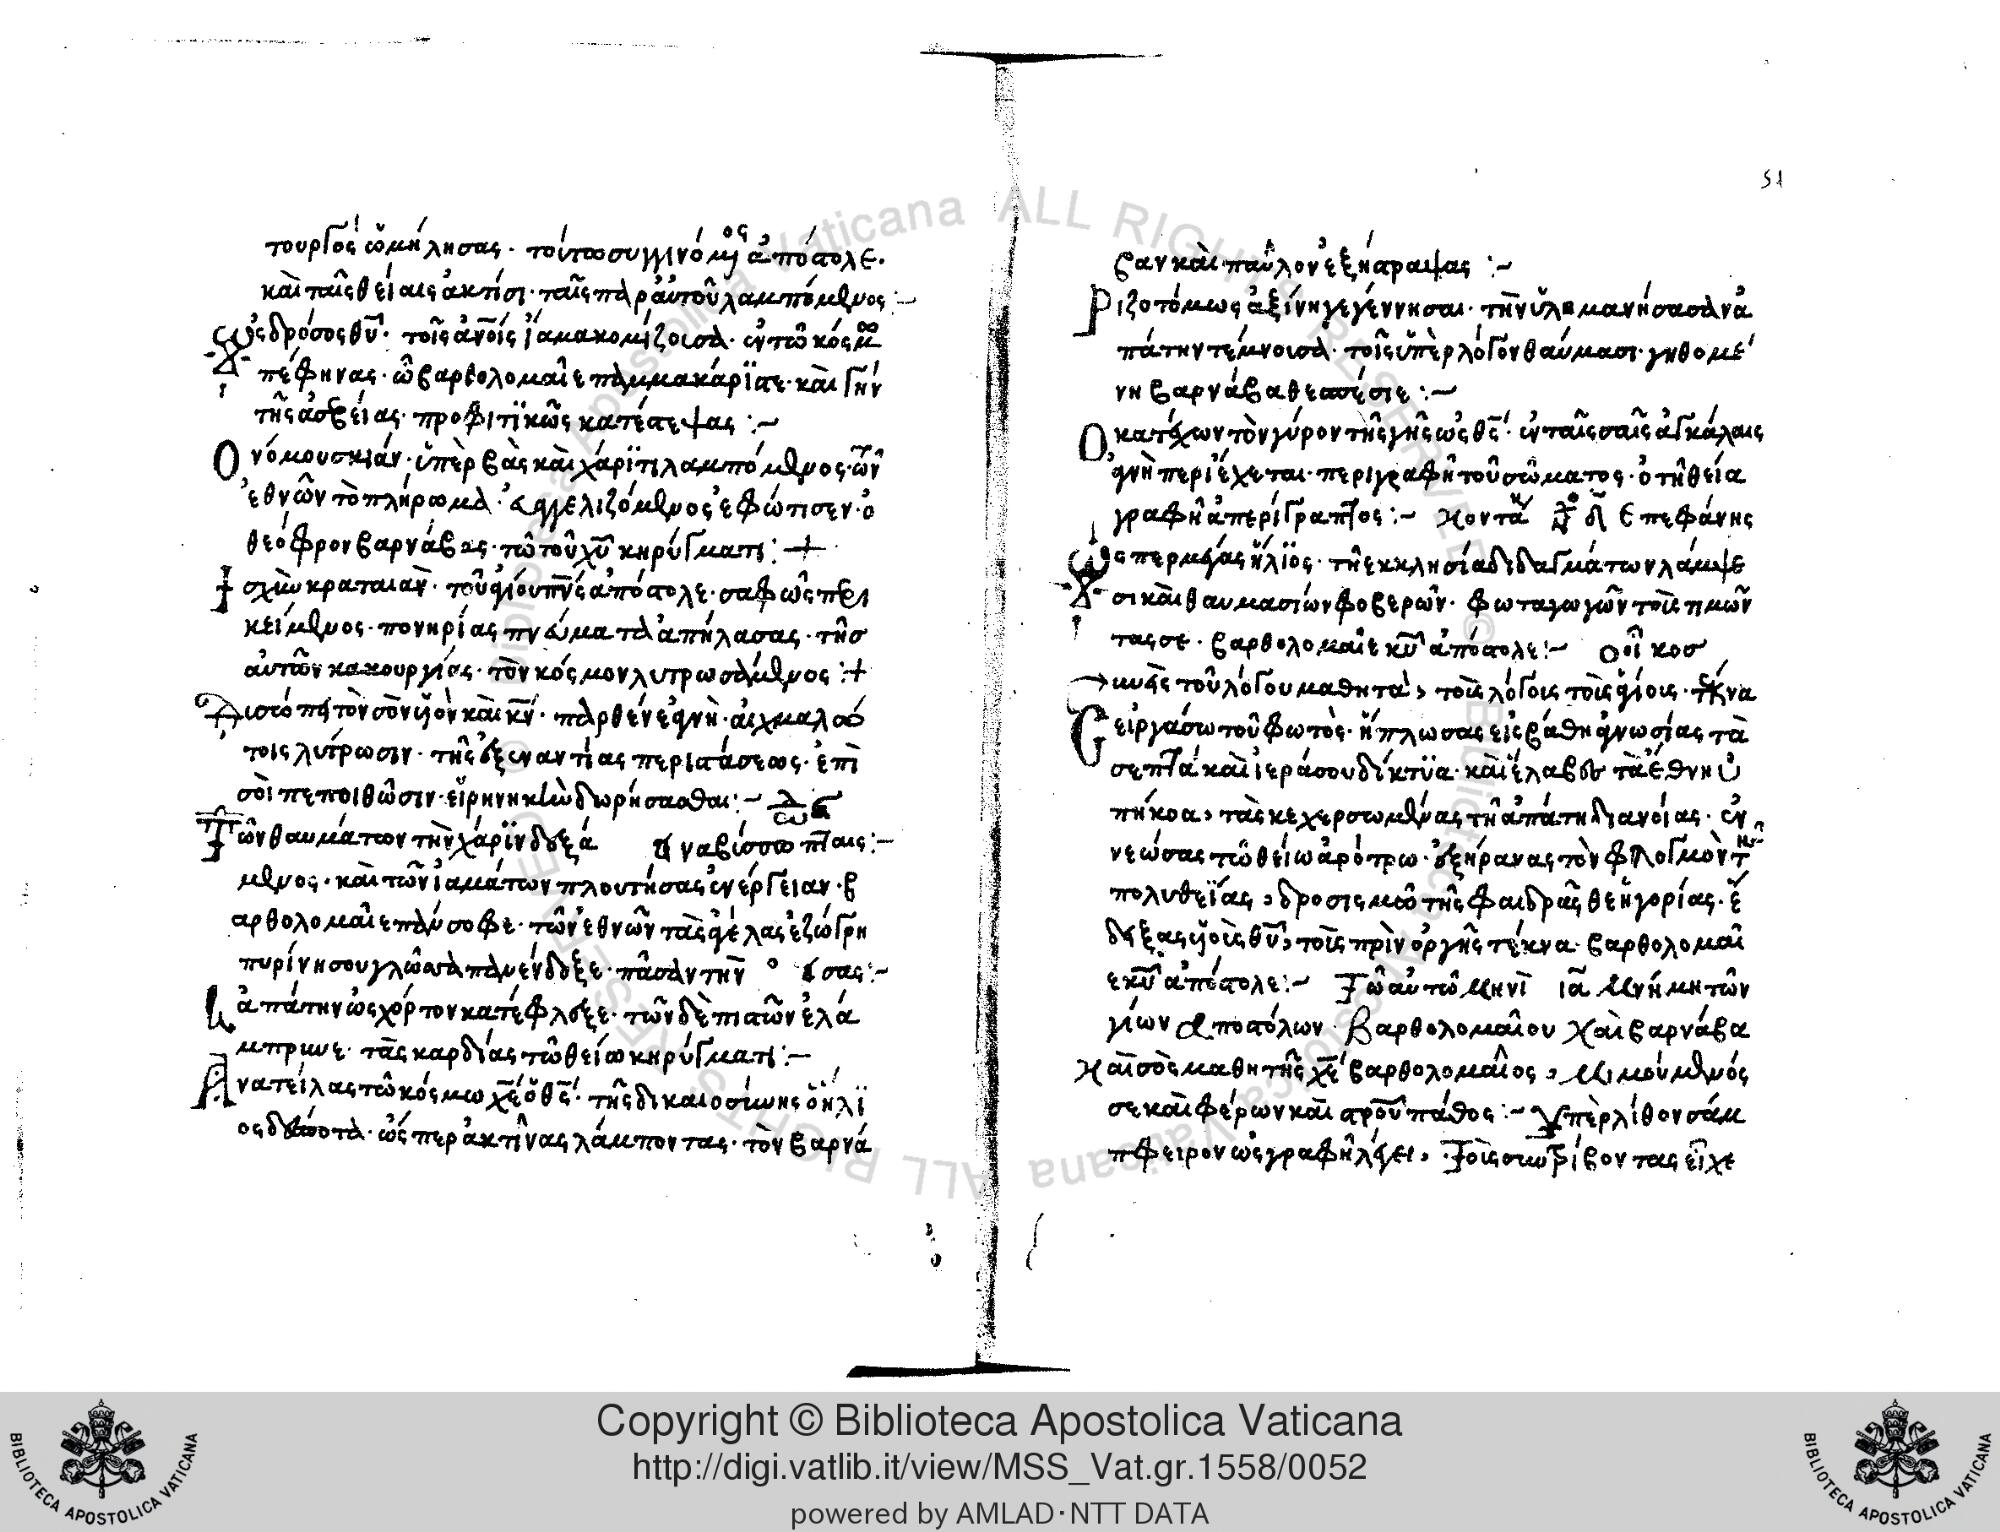 τουργὸς ὡμήλησας· τούτω συγγινόμενος ἀπόστολε·
καὶ ταῖς θείαις ἀκτίσι· ταῖς παρ αὐτοῦ λαμπόμενος :~
Ὡς δρόσος θῦ· τοῖς ἀνοῖς ἰάμα κομίζουσα· ἐν τῶ κόσμω
πέφηνας· ὦ βαρθολομαῖε παμμακάριστε· καὶ γῆν
τῆς ἀσεβείας· προφιτικῶς κατέστεψας :~
Ὁ νόμου σκιάν· ὑπερβὰς καὶ χάριτι λαμπόμενος· τῶν
ἐθνῶν τὸ πλήρωμα· εὐαγγελιζόμενος ἐφώτισεν· ὁ
θεόφρον βαρνάβας· τῶ τοῦ χῦ κηρύγματι : +
Ἰσχὺν κραταιὰν· τοῦ ἁγίου πνς ἀπόστολε· σαφῶς περι
κείμενος· πονηρίας πνεύματα ἀπήλασας· τῆσ
αὐτῶν κακουργίας· τὸν κόσμον λυτρωσάμενος :+
Δισώπει τὸν σὸν υἱὸν καὶ κν· παρθένε ἁγνὴ· αἰχμαλώ
τοις λύτρωσιν· τῆς ἐξ ἐναντίας περιστάσεως· ἐπὶ
σοὶ πεποιθῶσιν· εἰρηνικὴν δωρήσασθαι :~
Τῶν θαυμάτων τὴν χάριν δεξά ἐν ἀβύσσω πταις :~
μενος· καὶ τῶν ἰαμάτων πλουτήσας ἐνέργειαν· β
αρθολομαῖε πάνσοφε· τῶν ἐθνῶν τὰς ἀγέλας ἐζώγρη
πυρίνη σου γλῶσσα πανένδοξε· πᾶσαν τὴν σας :~
ἀπάτην ὡς χόρτον κατέφλεξε· τῶν δὲ πιστῶν ἐλά
μπρυνε· τὰς καρδίας τῶ θείω κηρύγματι :~
Ἀνατείλας τῶ κόσμω χὲ ὁ θς· τῆς δικαιοσύνης ὁ ἥλι
ος δυάστα· ὥσπερ ἀκτῖνας λάμποντας· τὸν βαρνά
51
βαν καὶ παῦλον ἐξήστραψας :~
Ῥιζοτόμως ἀξίνη γεγέννησαι· τὴν ὕλομανήσασαν ἀ
πάτην τέμνουσα· τοῖς ὑπὲρ λόγον θαύμασι· γηθομέ
νη βαρνάβα θεασέσιε :~
Ὁ κατέχων τὸν γύρον τῆς γῆς ὡς θς· ἐν ταῖς σαῖς ἀγκάλαις
ἁγνὴ περιέχεται· περιγραφῆ τοῦ σώματος· ὁ τῆ θεία
γραφῆ ἀπερίγραπτος :~ κοντά ἦχος δ Ἐπεφάνης
Ὥσπερ μέγας ἥλιος· τῆ ἐκκλησία διδαγμάτων λάμψε
σι καὶ θαυμασίων φοβερῶν· φωταγωγῶν τοὺς τιμῶν
τας σε· βαρθολομαῖε κῦ ἀπόστολε :~ ὁ οἶκοσ
Εὐμνὲς τοῦ λόγου μαθητὰ, τοῖς λόγοις τοῖς ἁγίοις· τέκνα
εἰργάσω τοῦ φωτὸς· ἥπλωσας εἰς βάθη ἀγνωσίας τὰ
σεπτά καὶ ἱερά σου δίκτυα· καὶ ἔλαβες τὰ ἔθνη ὑ
πήκοα, τὰς κεχερσωμένας τῆ ἀπάτη διανοίας· ἐν
νεώσας τῶ θείω ἀρότρω· ἐξήρανας τὸν φλογμὸν τῆς
πολυθεΐας, δροσισμῶ τῆς φαιδρᾶς θεηγορίας· ἔ
δειξας υἱοὺς θῦ, τοῖς πρὶν ὀργῆς τέκνα· βαρθολομαῖ
ε κῦ ἀπόστολε :~ Τῶ αὐτῶ μηνὶ ια μνήμη τῶν
ἁγίων ἀποστόλων βαρθολομαίου καὶ βαρνάβα
Καὶ σὸς μαθητῆς χὲ βαρθολομαῖος, μιμούμενός
σε καὶ φέρων καὶ στροῦ πάθος :~ Ὑπὲρ λίθον σάμ
πφειρον ὡς γραφῆ λέγει, Τοὺς σω τρίβοντας εἶχε
Copyright © Biblioteca Apostolica Vaticana
http://digi.vatlib.it/view/MSS_Vat.gr.1558/0052
powered by AMLAD·NTT DATA